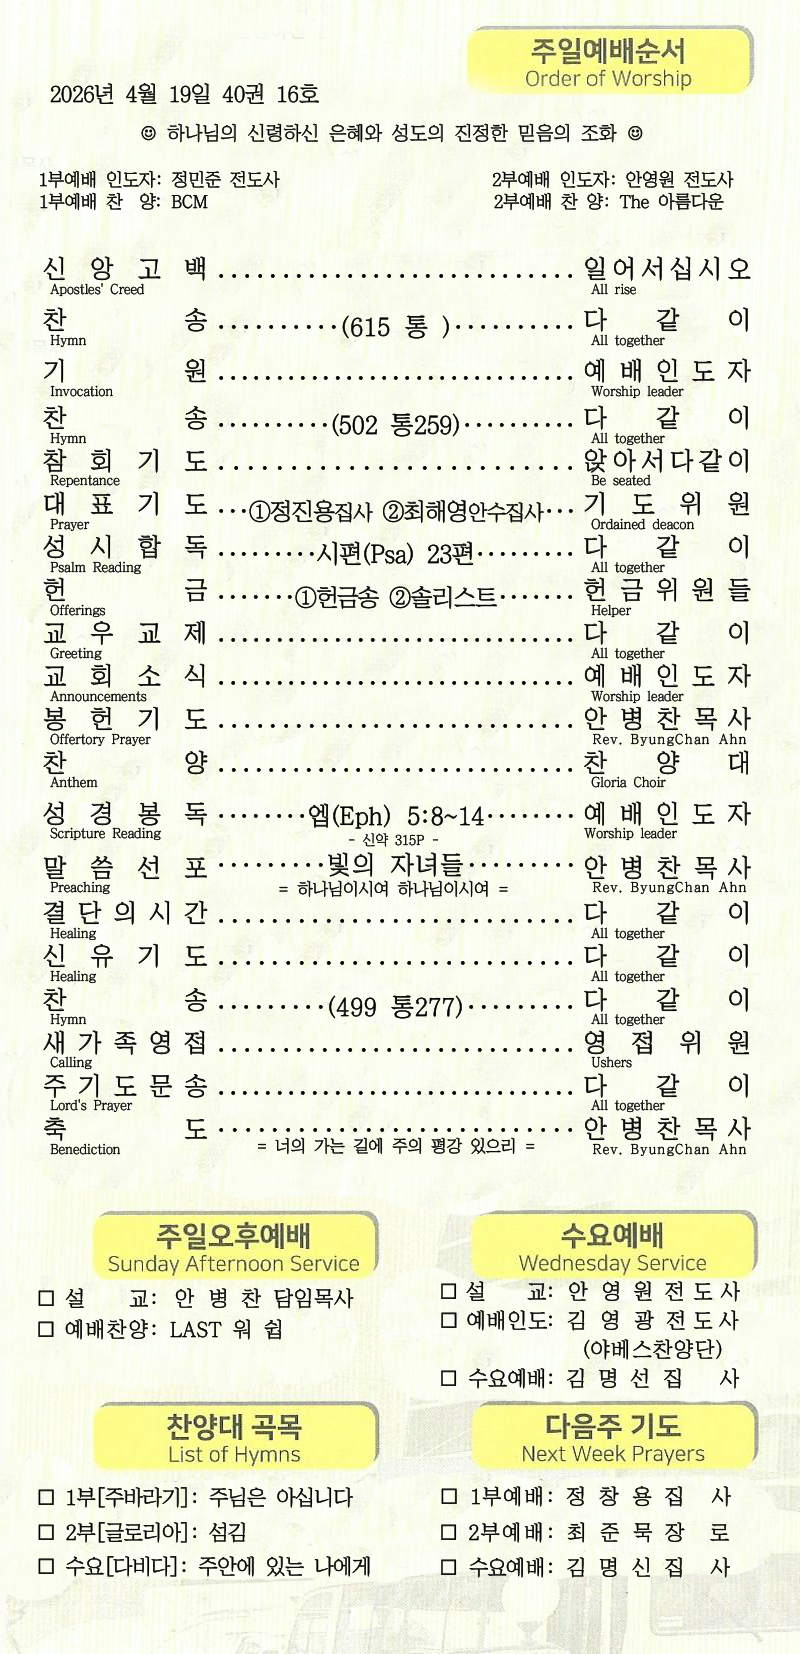 주일예배순서
Order of Worship
2026년 4월 19일 40권 16호
☺ 하나님의 신령하신 은혜와 성도의 진정한 믿음의 조화 ☺
1부예배 인도자: 정민준 전도사 2부예배 인도자: 안영원 전도사
1부예배 찬 양: BCM 2부예배 찬 양: The 아름다운
신 앙 고 백 ............................ 일어서십시오
Apostles' Creed All rise
찬 송 ..........(615 통 ).......... 다 같 이
Hymn All together
기 원 ............................ 예배인도자
Invocation Worship leader
찬 송 .........(502 통259)......... 다 같 이
Hymn All together
참 회 기 도 ............................ 앉아서다같이
Repentance Be seated
대 표 기 도 ...①정진용집사 ②최해영안수집사... 기 도 위 원
Prayer Ordained deacon
성 시 합 독 ........시편(Psa) 23편........ 다 같 이
Psalm Reading All together
헌 금 ......①헌금송 ②솔리스트...... 헌금위원들
Offerings Helper
교 우 교 제 ............................ 다 같 이
Greeting All together
교 회 소 식 ............................ 예배인도자
Announcements Worship leader
봉 헌 기 도 ............................ 안병찬목사
Offertory Prayer Rev. ByungChan Ahn
찬 양 ............................ 찬 양 대
Anthem Gloria Choir
성 경 봉 독 ........엡(Eph) 5:8~14........ 예배인도자
Scripture Reading - 신약 315P - Worship leader
말 씀 선 포 .........빛의 자녀들......... 안병찬목사
Preaching = 하나님이시여 하나님이시여 = Rev. ByungChan Ahn
결단의시간 ............................ 다 같 이
Healing All together
신 유 기 도 ............................ 다 같 이
Healing All together
찬 송 .........(499 통277)......... 다 같 이
Hymn All together
새가족영접 ............................ 영 접 위 원
Calling Ushers
주기도문송 ............................ 다 같 이
Lord's Prayer All together
축 도 ............................ 안병찬목사
Benediction = 너의 가는 길에 주의 평강 있으리 = Rev. ByungChan Ahn
주일오후예배
Sunday Afternoon Service
□ 설 교: 안 병 찬 담임목사
□ 예배찬양: LAST 워 쉽
수요예배
Wednesday Service
□ 설 교: 안 영 원 전 도 사
□ 예배인도: 김 영 광 전 도 사
(야베스찬양단)
□ 수요예배: 김 명 선 집 사
찬양대 곡목
List of Hymns
□ 1부[주바라기]: 주님은 아십니다
□ 2부[글로리아]: 섬김
□ 수요[다비다]: 주안에 있는 나에게
다음주 기도
Next Week Prayers
□ 1부예배: 정 창 용 집 사
□ 2부예배: 최 준 묵 장 로
□ 수요예배: 김 명 신 집 사